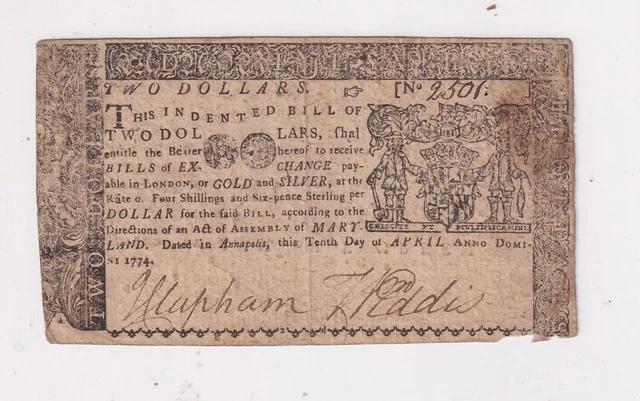 TWO DOLLARS. [No 2501.
THIS INDENTED BILL OF
TWO DOL LARS, ſhal
entitle the Bearer hereof to receive
BILLS of EX- CHANGE pay-
able in LONDON, or GOLD and SILVER, at the
Rate o. Four Shillings and Six-pence Sterling per
DOLLAR for the ſaid BILL, according to the
Directions of an Act of ASSEMBLY of MARY-
LAND. Dated in Annapolis, this Tenth Day of APRIL ANNO DOMI-
NI 1774.
CRESCITE ET MULTIPLICAMINI
JClapham Wm Eddis